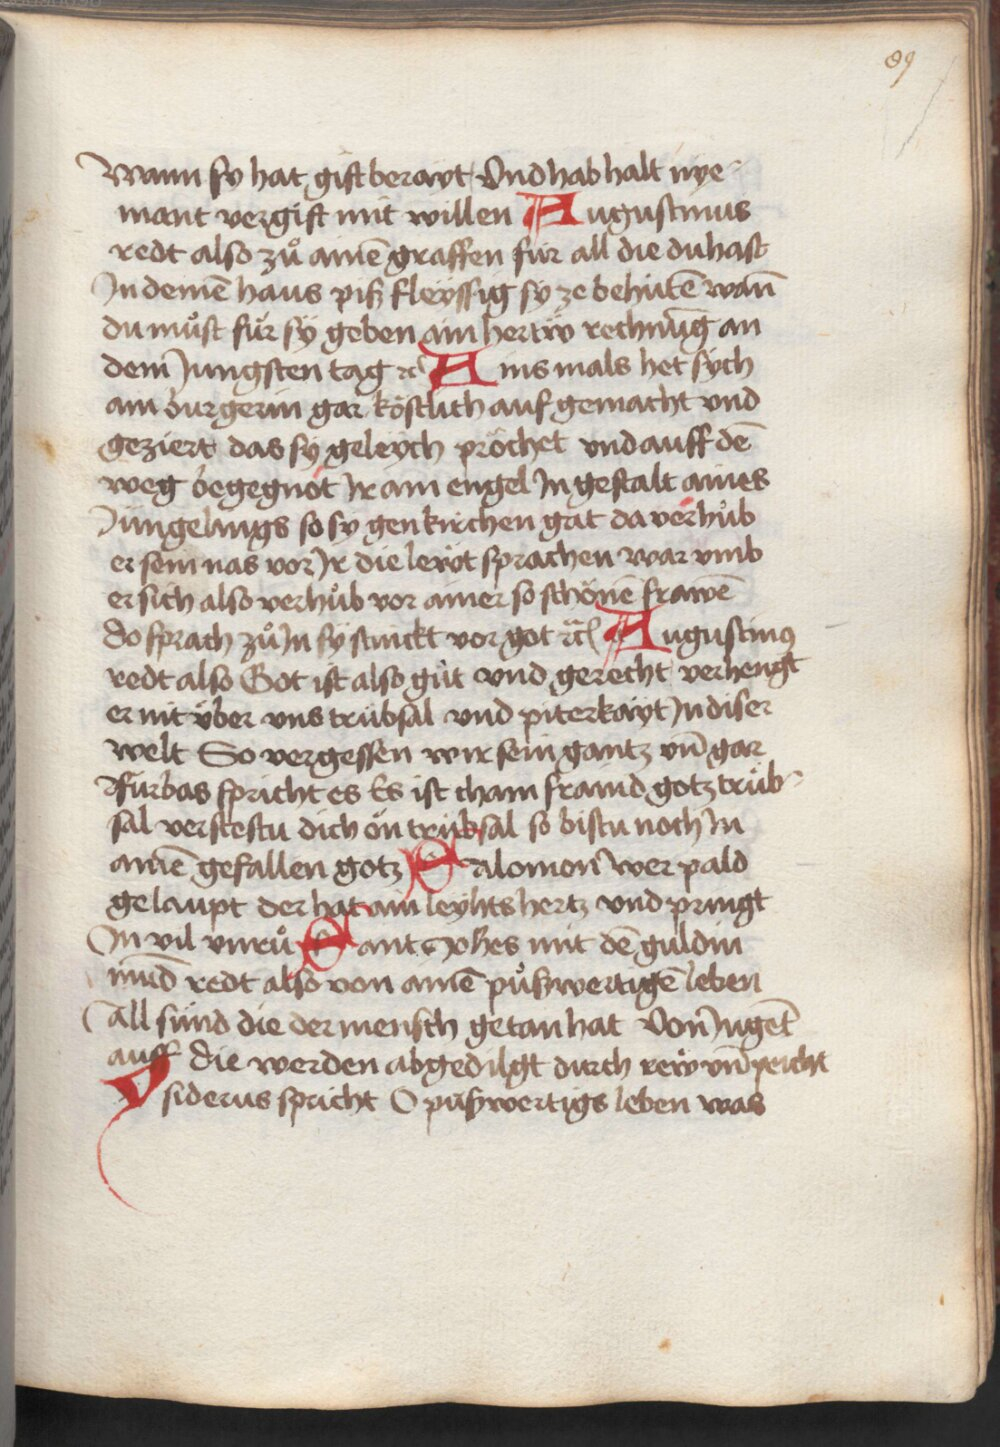 89
Wann sy hat gift berayt Vnd hab halt nye¬
mant vergift mit willen Augustinus
redt also zuͦ ainē graffen fur all die du hast
In deinē haus piß fleyssig sy ze behutē wañ
du muͦst fur sy geben ain hertw rechnūg an
dem Jungsten tag ⁊c̄ Ains mals het sych
ain burgerin gar köstlich auf gemacht vnd
geziert das sy geleych pröchet vnd auff dē
weg begegnot Ir ain engel In gestalt aines
Jungelings so sy gen kirchen gat da verhuͦb
er sein nas vor Ir die leẅt sprachen war vmb
er sich also verhuͦb vor ainer so schönē frawē
do sprach zuͦ In sy stinckt vor got ⁊c̄ Augustinꝰ
redt also Got ist also guͦt vnd gerecht verhengt
er nit v̈ber vns trubsal vnd piterkayt In diser
welt So vergessen wir sein gantz vn̄ gar
furbas spricht es Es ist chain framd gotz truͤb¬
sal verstestu dich on trubsal so bistu noch In
ainē gefallen gotz Salomon wer pald
gelaupt der hat ain leyhts hertz vnd pringt
In vil vnruͦ Sant Johes mit dē guldin
mūd redt also von ainē puͦßwertigē leben
All sünd die der mensch getan hat Von Jugēt
auff die werden abgedilgt durch rew vn̄ peicht
Ysiderus spricht O pußwertigs leben was